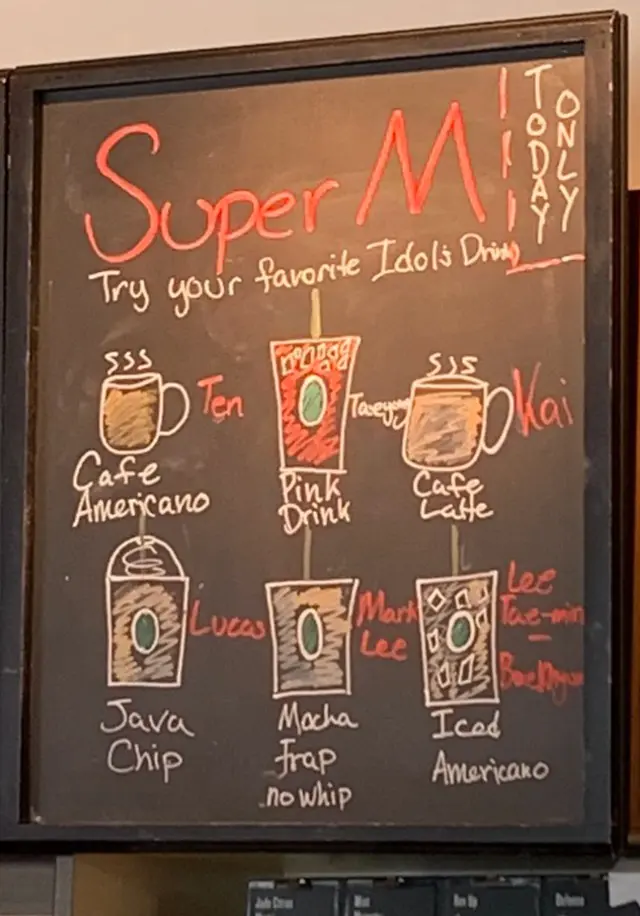 Super M
TODAY
ONLY
Try your favorite Idol's Drink
Ten
Cafe
Americano
Taeyong
Pink
Drink
Kai
Cafe
Latte
Lucas
Java
Chip
Mark
Lee
Mocha
Frap
no whip
Lee
Tae-min
Baekhyun
Iced
Americano
Jade Citrus
Mint
Rev Up
Defense